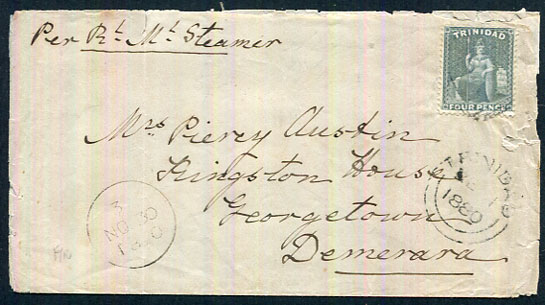 Per Rl. Mt. Steamer
TRINIDAD
FOUR PENCE
Mrs Piercy Austin
Kingston House
Georgetown
Demerara
TRINIDAD
1880
3
NO 30